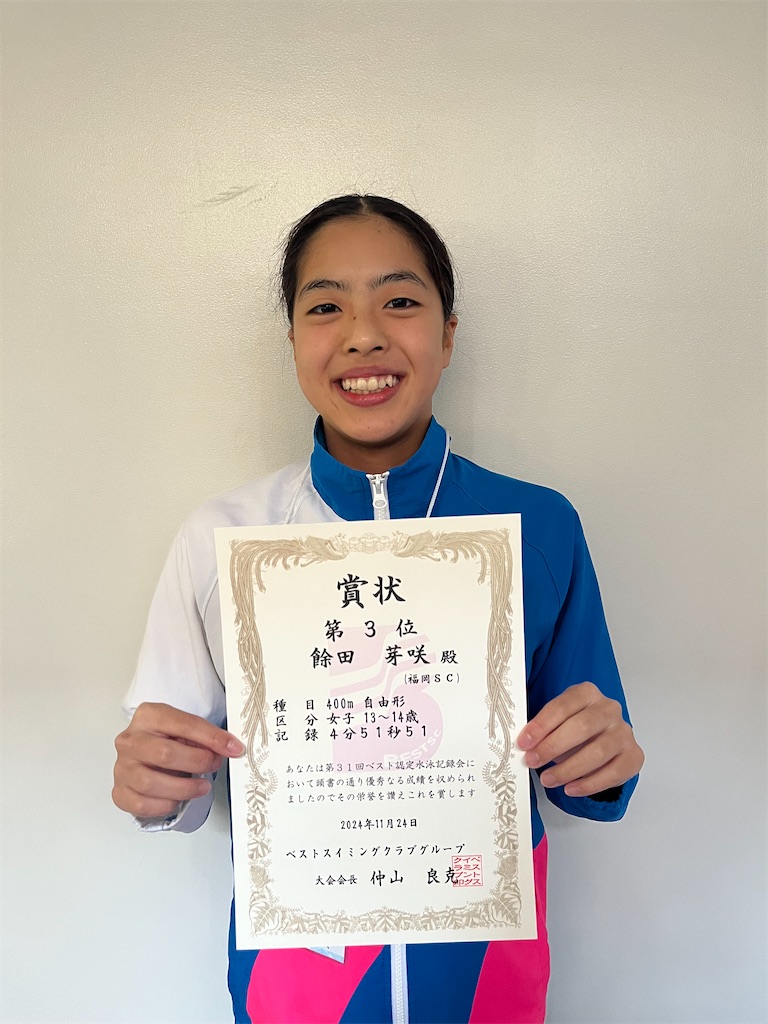 賞状
第 3 位
餘田 芽咲 殿
(福岡SC)
種 目 400m 自由形
区 分 女子 13～14歳
記 録 4分51秒51
あなたは第31回ベスト認定水泳記録会に
おいて頭書の通り優秀なる成績を収められ
ましたのでその栄誉を讃えこれを賞します
2024年11月24日
ベストスイミングクラブグループ
大会会長 仲山 良克
BESTSC